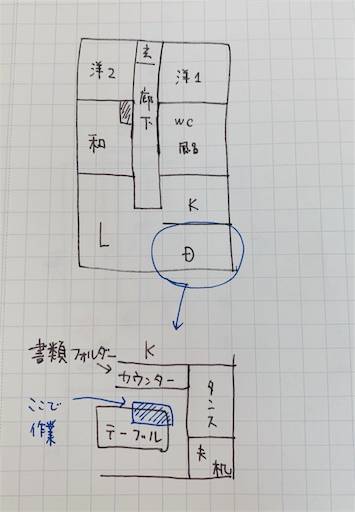 玄
洋2
洋1
廊下
WC
風呂
和
K
L
D
書類フォルダー
K
カウンター
タンス
ここで
作業
テーブル
夫
机